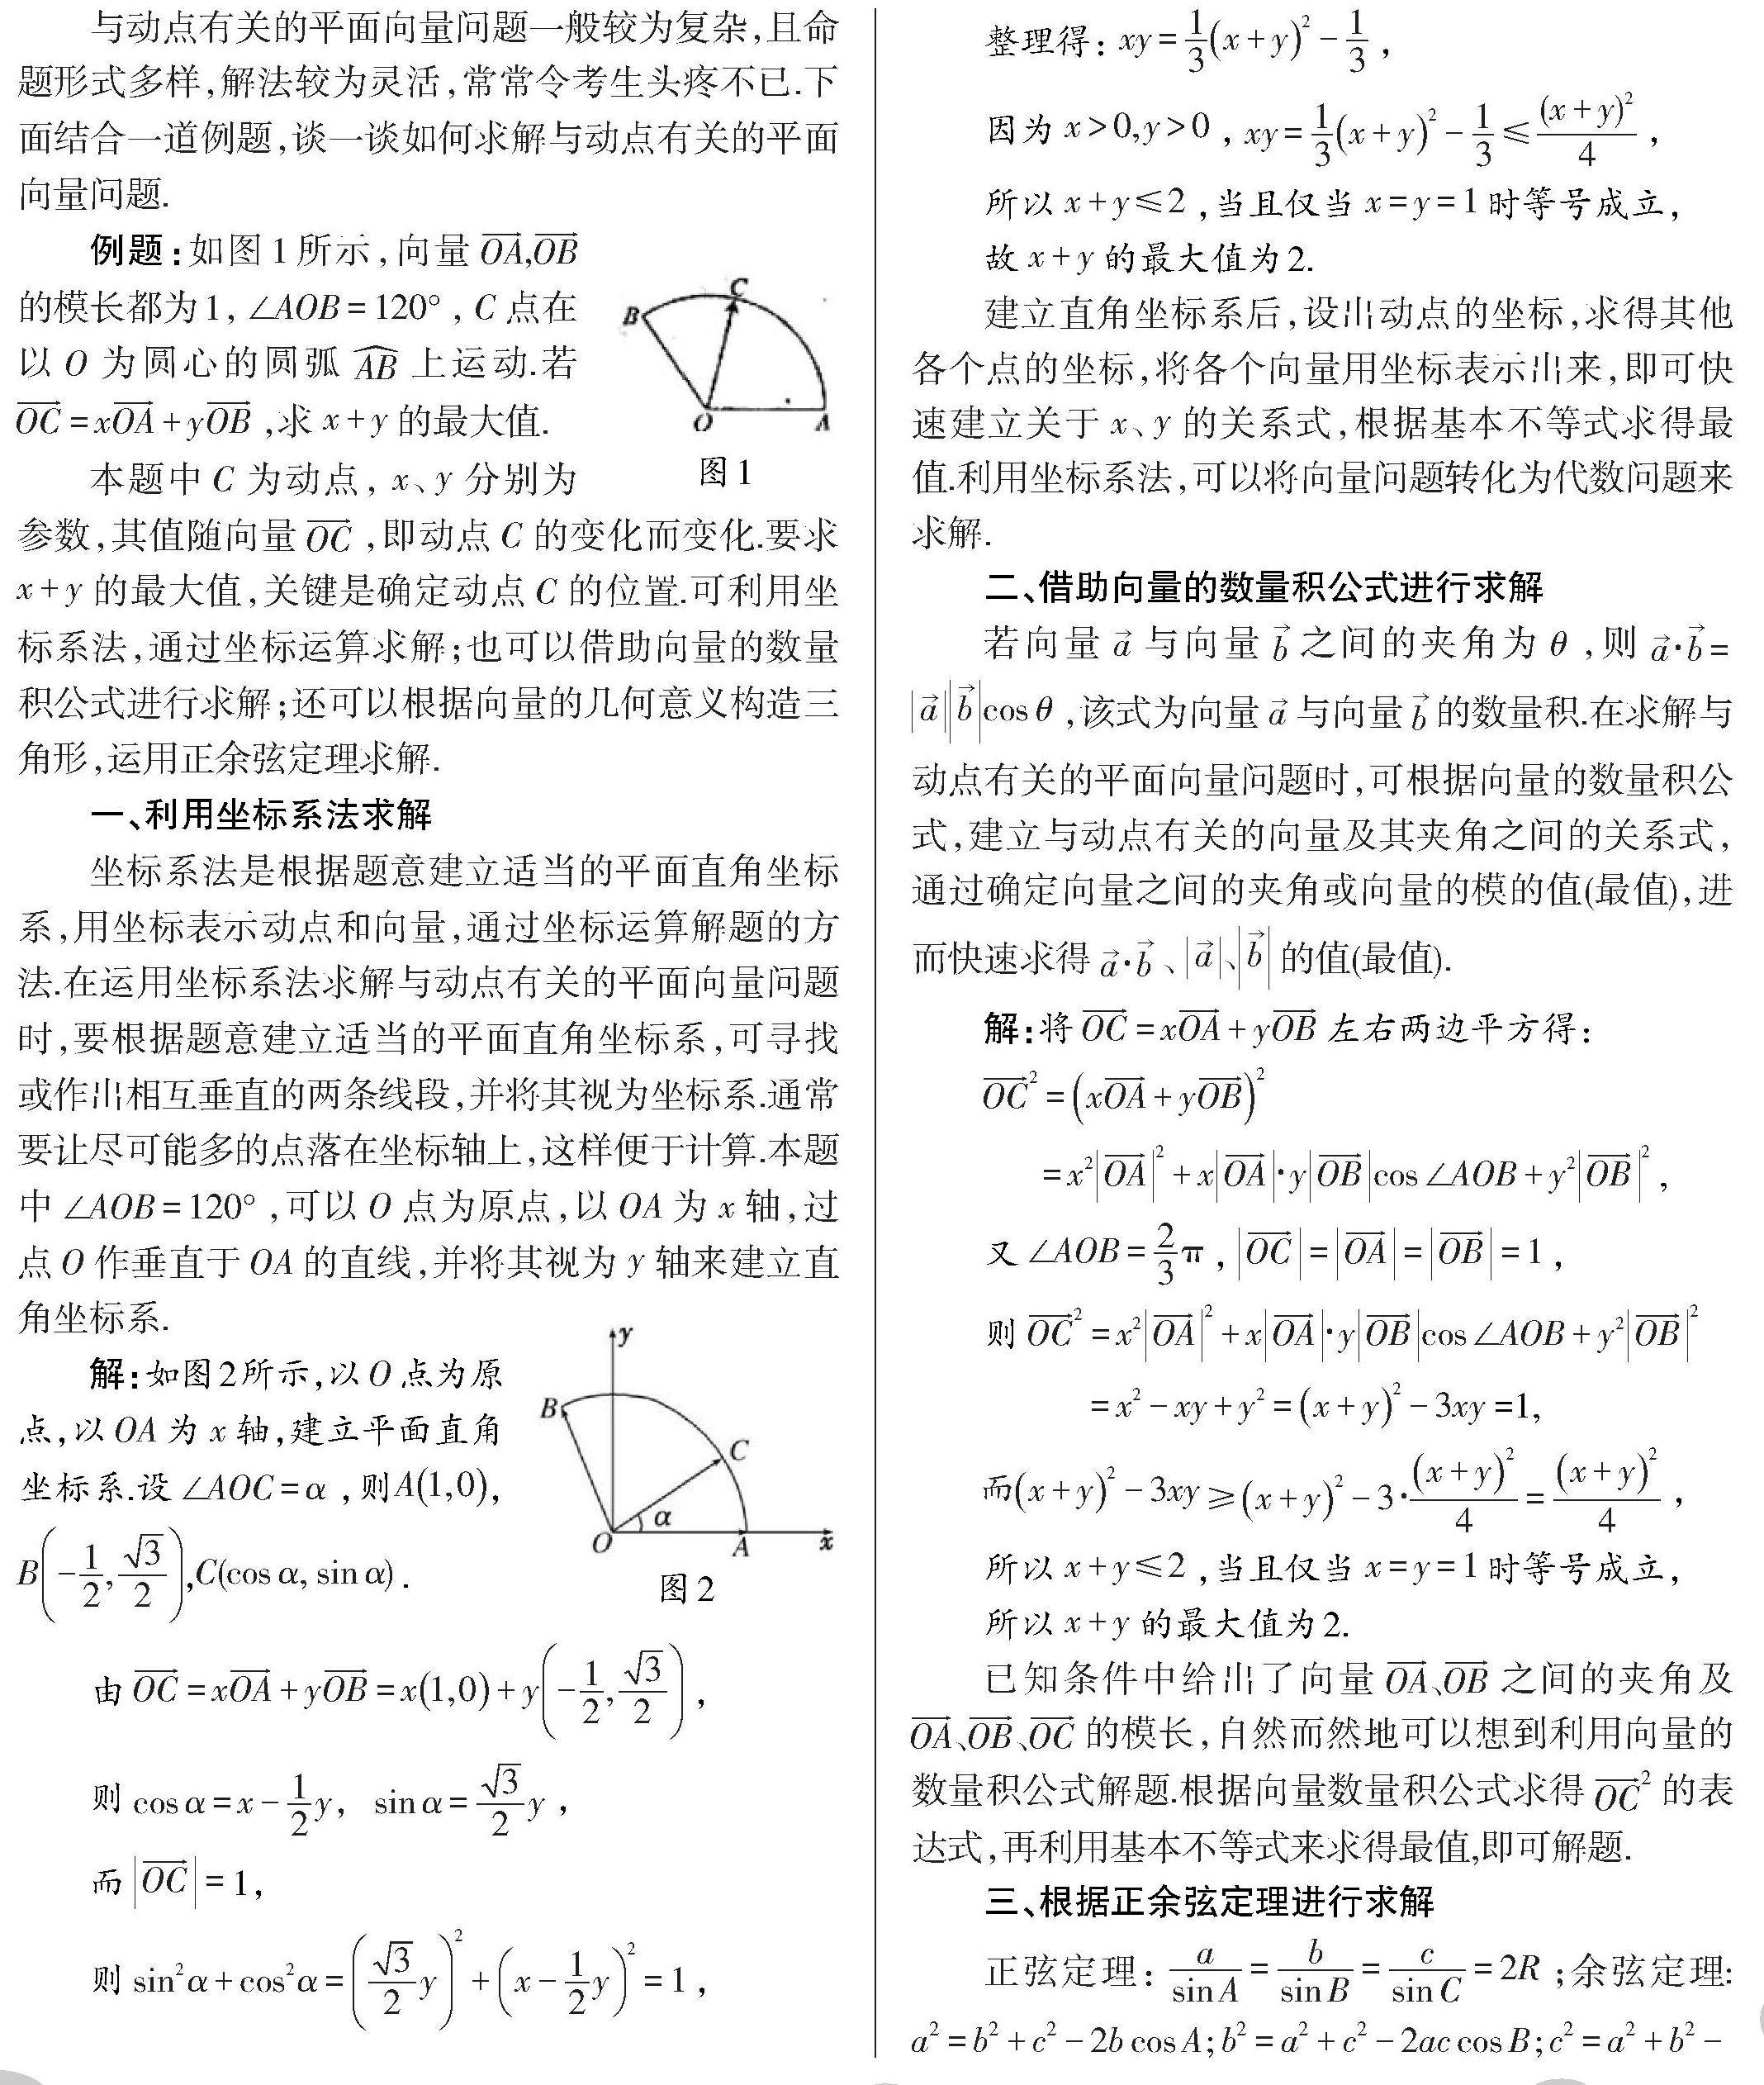 与动点有关的平面向量问题一般较为复杂,且命
题形式多样,解法较为灵活,常常令考生头疼不已.下
面结合一道例题,谈一谈如何求解与动点有关的平面
向量问题.
例题:如图1所示,向量 $\overrightarrow{OA}$,$\overrightarrow{OB}$
的模长都为1, ∠AOB = 120° , C 点在
以 O 为圆心的圆弧 $\overset{\frown}{AB}$ 上运动.若
$\overrightarrow{OC}$ = x$\overrightarrow{OA}$ + y$\overrightarrow{OB}$ ,求 x + y 的最大值.
B
C
O
A
图1
本题中 C 为动点, x、y 分别为
参数,其值随向量 $\overrightarrow{OC}$ ,即动点 C 的变化而变化.要求
x + y 的最大值,关键是确定动点 C 的位置.可利用坐
标系法,通过坐标运算求解;也可以借助向量的数量
积公式进行求解;还可以根据向量的几何意义构造三
角形,运用正余弦定理求解.
一、利用坐标系法求解
坐标系法是根据题意建立适当的平面直角坐标
系,用坐标表示动点和向量,通过坐标运算解题的方
法.在运用坐标系法求解与动点有关的平面向量问题
时,要根据题意建立适当的平面直角坐标系,可寻找
或作出相互垂直的两条线段,并将其视为坐标系.通常
要让尽可能多的点落在坐标轴上,这样便于计算.本题
中 ∠AOB = 120° ,可以 O 点为原点,以 OA 为 x 轴,过
点 O 作垂直于 OA 的直线,并将其视为 y 轴来建立直
角坐标系.
解:如图2所示,以 O 点为原
点,以 OA 为 x 轴,建立平面直角
坐标系.设 ∠AOC = α ,则 A(1,0),
$B\left(-\frac{1}{2},\frac{\sqrt{3}}{2}\right)$,C(cos α, sin α) .
y
B
C
α
O
A
x
图2
由 $\overrightarrow{OC}=x\overrightarrow{OA}+y\overrightarrow{OB}=x(1,0)+y\left(-\frac{1}{2},\frac{\sqrt{3}}{2}\right)$ ,
则 $\cos\alpha=x-\frac{1}{2}y$, $\sin\alpha=\frac{\sqrt{3}}{2}y$ ,
而 $|\overrightarrow{OC}|=1$,
则 $\sin^2\alpha+\cos^2\alpha=\left(\frac{\sqrt{3}}{2}y\right)^2+\left(x-\frac{1}{2}y\right)^2=1$ ,
整理得: $xy=\frac{1}{3}(x+y)^2-\frac{1}{3}$ ,
因为 x > 0,y > 0 , $xy=\frac{1}{3}(x+y)^2-\frac{1}{3}\leq\frac{(x+y)^2}{4}$ ,
所以 x + y ≤ 2 ,当且仅当 x = y = 1 时等号成立,
故 x + y 的最大值为2.
建立直角坐标系后,设出动点的坐标,求得其他
各个点的坐标,将各个向量用坐标表示出来,即可快
速建立关于 x、y 的关系式,根据基本不等式求得最
值.利用坐标系法,可以将向量问题转化为代数问题来
求解.
二、借助向量的数量积公式进行求解
若向量 $\vec{a}$ 与向量 $\vec{b}$ 之间的夹角为 θ ,则 $\vec{a}\cdot\vec{b}=$
$|\vec{a}||\vec{b}|\cos\theta$ ,该式为向量 $\vec{a}$ 与向量 $\vec{b}$ 的数量积.在求解与
动点有关的平面向量问题时,可根据向量的数量积公
式,建立与动点有关的向量及其夹角之间的关系式,
通过确定向量之间的夹角或向量的模的值(最值),进
而快速求得 $\vec{a}\cdot\vec{b}$ 、$|\vec{a}|$、$|\vec{b}|$ 的值(最值).
解:将 $\overrightarrow{OC}=x\overrightarrow{OA}+y\overrightarrow{OB}$ 左右两边平方得:
$\overrightarrow{OC}^2=\left(x\overrightarrow{OA}+y\overrightarrow{OB}\right)^2$
$=x^2|\overrightarrow{OA}|^2+x|\overrightarrow{OA}|\cdot y|\overrightarrow{OB}|\cos\angle AOB+y^2|\overrightarrow{OB}|^2$ ,
又 $\angle AOB=\frac{2}{3}\pi$ , $|\overrightarrow{OC}|=|\overrightarrow{OA}|=|\overrightarrow{OB}|=1$ ,
则 $\overrightarrow{OC}^2=x^2|\overrightarrow{OA}|^2+x|\overrightarrow{OA}|\cdot y|\overrightarrow{OB}|\cos\angle AOB+y^2|\overrightarrow{OB}|^2$
$=x^2-xy+y^2=(x+y)^2-3xy=1$,
而$(x+y)^2-3xy\geq(x+y)^2-3\cdot\frac{(x+y)^2}{4}=\frac{(x+y)^2}{4}$ ,
所以 x + y ≤ 2 ,当且仅当 x = y = 1 时等号成立,
所以 x + y 的最大值为2.
已知条件中给出了向量 $\overrightarrow{OA}$、$\overrightarrow{OB}$ 之间的夹角及
$\overrightarrow{OA}$、$\overrightarrow{OB}$、$\overrightarrow{OC}$ 的模长,自然而然地可以想到利用向量的
数量积公式解题.根据向量数量积公式求得 $\overrightarrow{OC}^2$ 的表
达式,再利用基本不等式来求得最值,即可解题.
三、根据正余弦定理进行求解
正弦定理: $\frac{a}{\sin A}=\frac{b}{\sin B}=\frac{c}{\sin C}=2R$ ;余弦定理:
$a^2=b^2+c^2-2b\cos A;b^2=a^2+c^2-2ac\cos B;c^2=a^2+b^2-$